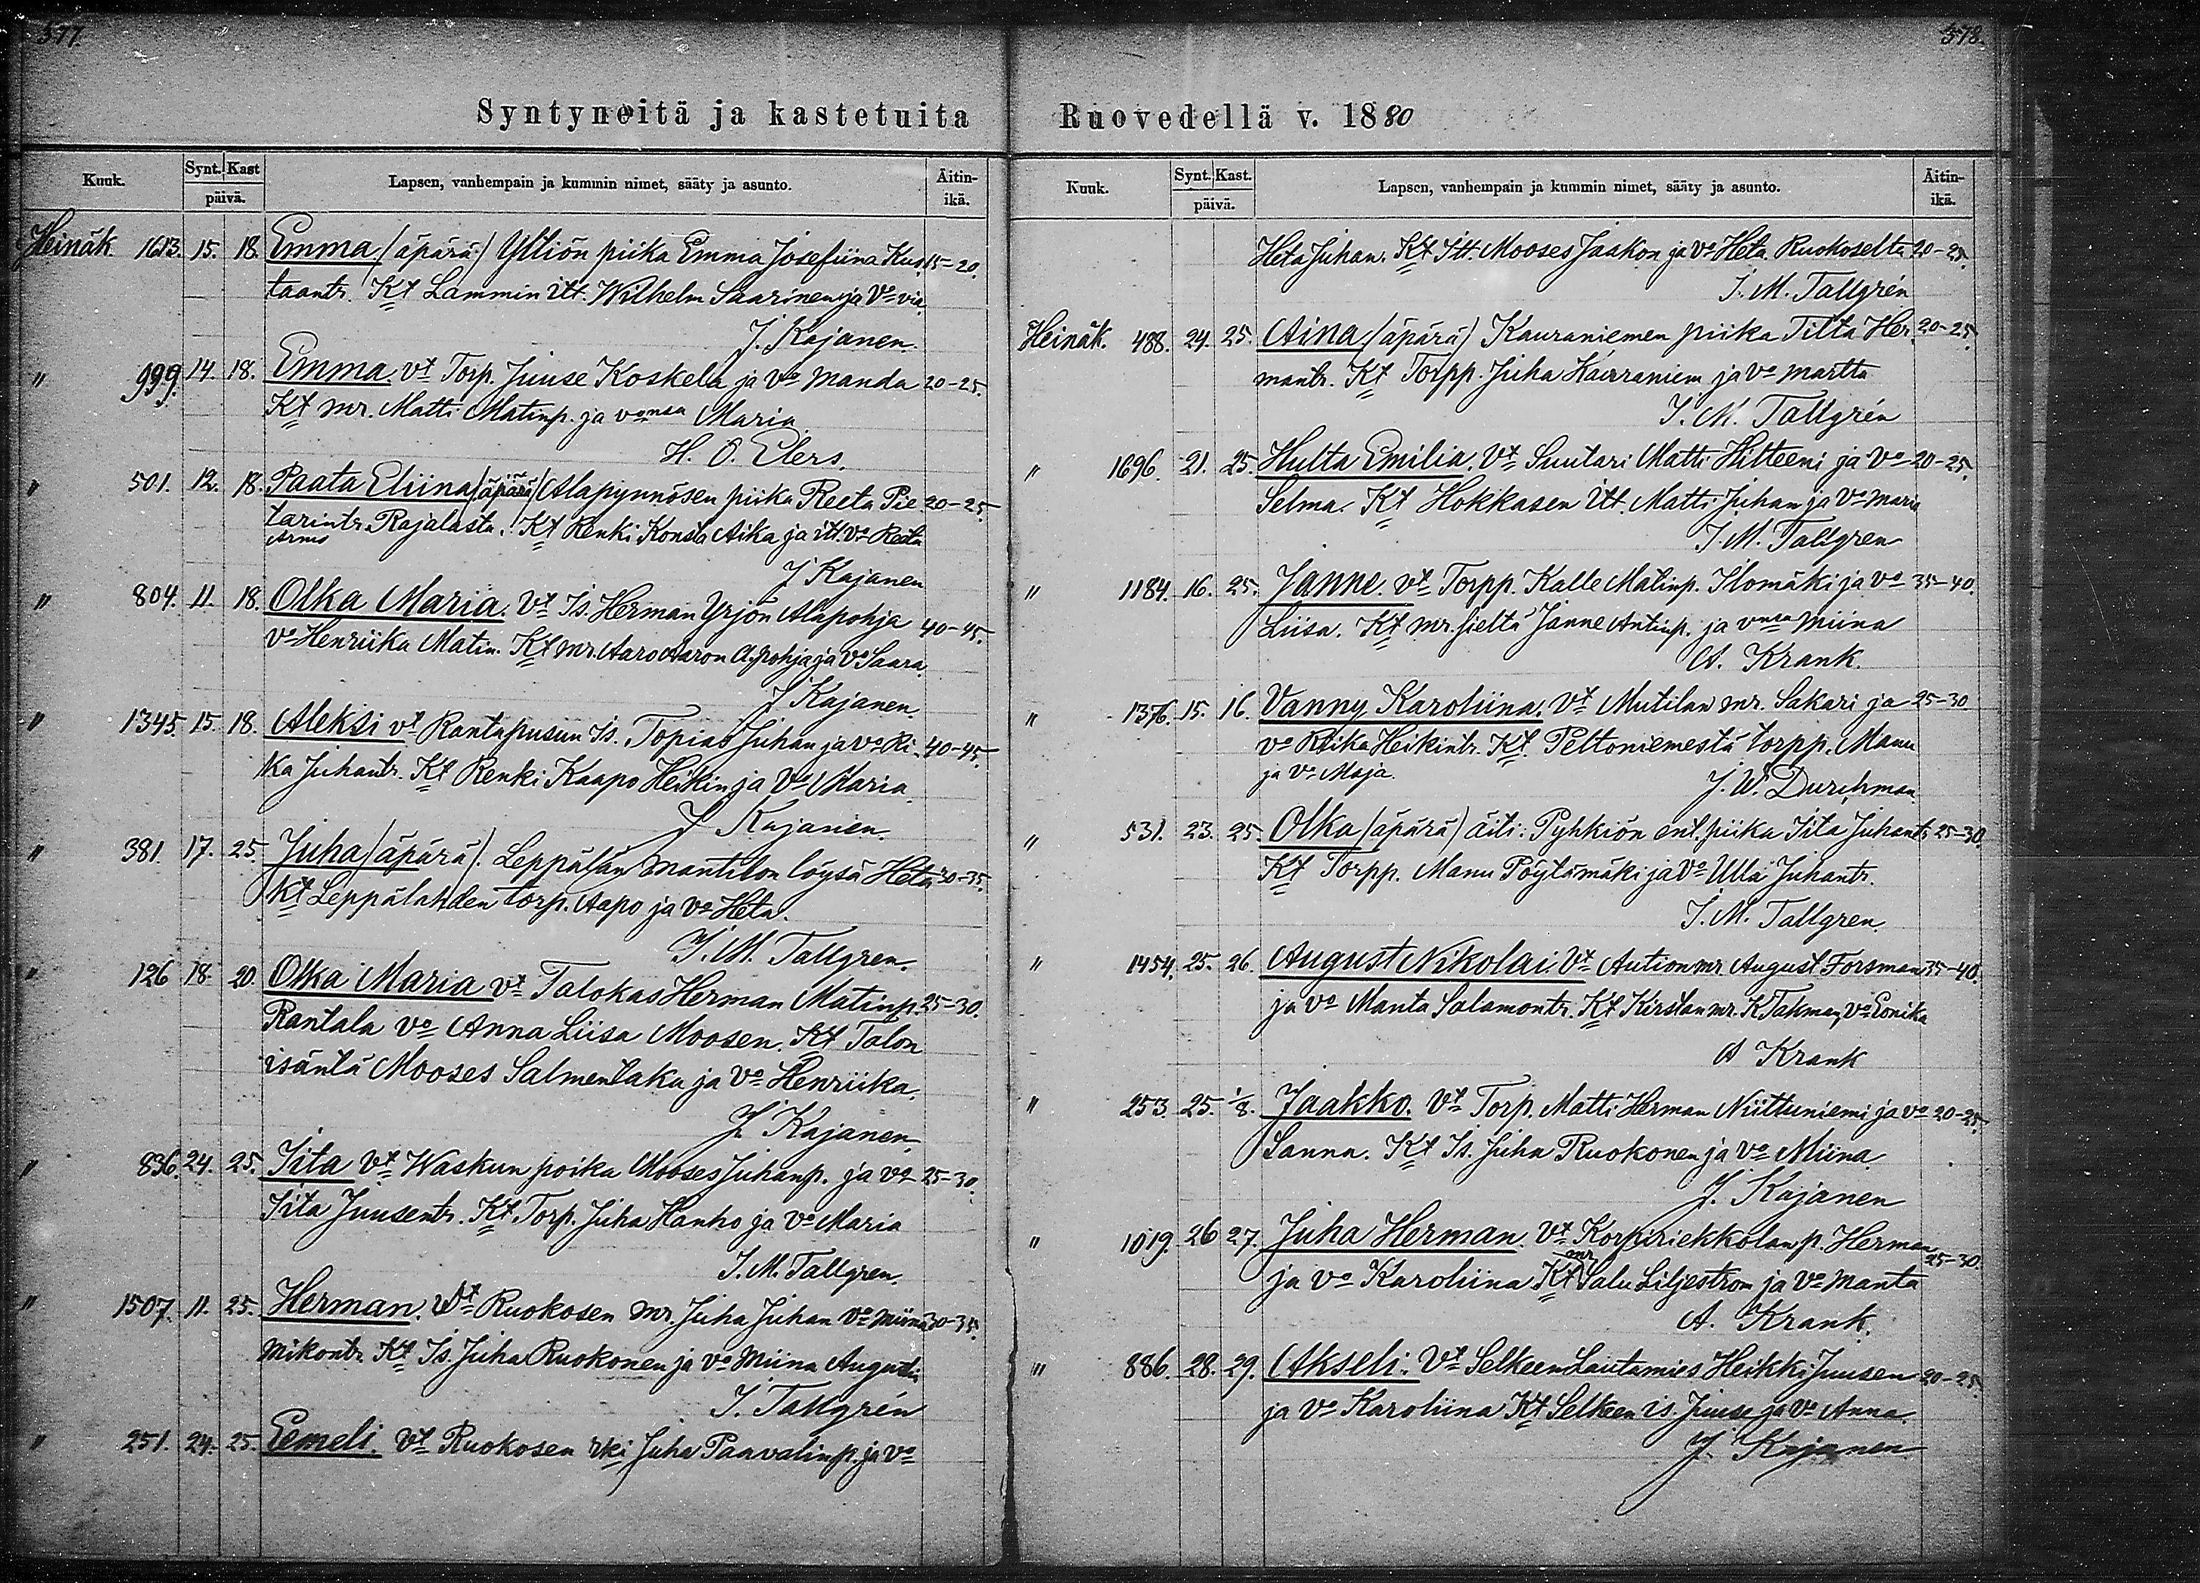 577.
Syntyneitä ja kastetuita
Kuuk. Synt. Kast päivä. Lapsen, vanhempain ja kummin nimet, sääty ja asunto. Äitin-ikä.
Heinäk 1613. 15. 18. Emma (äpärä) Yltiön piika Emma Josefiina Kus 15-20.
taantr. Kt Lammin itt. Wilhelm Saarinen ja Vo
J. Kajanen.
" 999. 14. 18. Emma. Vt Torp. Juuse Koskela ja Vo Manda 20-25.
Kt mr. Matti Matinp. ja vonsa Maria
H. O. Elers.
" 501. 12. 18. Paata Eliina (äpärä) Alapynnösen piika Reeta Pie 20-25.
tarintr. Rajalasta. Kt Renki Konsta Aika ja itt. Vo Reeta
J Kajanen
" 804. 11. 18. Olka Maria. Vt Is. Herman Yrjön Alapohja 40-45.
Vo Henriika Matin. Kt mr. Aaro Aaron A.pohja ja Vo Saara.
J Kajanen.
" 1345. 15. 18. Aleksi Vt Rantapusun Is. Topias Juhan ja Vo Ri- 40-45.
ka Juhantr. Kt Renki Kaapo Heikin ja Vo Maria.
J Kajanen.
" 381. 17. 25. Juha (äpärä). Leppälän mantilon löysä Heta 30-35.
Kt Leppälahden torp. Aapo ja Vo Heta.
J. M. Tallgren.
" 126 18. 20. Olka Maria Vt Talokas Herman Matinp. 25-30.
Rantala Vo Anna Liisa Moosen. Kt Talon
isäntä Mooses Salmentaka ja Vo Henriika.
J. Kajanen
" 836. 24. 25. Iita Vt Waskun poika Mooses Juhanp. ja Vo 25-30.
Iita Juusentr. Kt. Torp. Juha Hanho ja Vo Maria
J. M. Tallgren.
" 1507. 11. 25. Herman. Vt Ruokosen mr. Juha Juhan Vo Miina 30-35.
Mikontr. Kt Is. Juha Ruokonen ja Vo Miina Augustin
J. Tallgrén
" 251. 24. 25. Eemeli. Vt Ruokosen rki Juha Paavalinp. ja Vo
578.
Ruovedellä v. 1880
Kuuk. Synt. Kast. päivä. Lapsen, vanhempain ja kummin nimet, sääty ja asunto. Äitin-ikä.
Heta Juhan. Kt Itt. Mooses Jaakon ja Vo Heta Ruokoselta 20-25.
J. M. Tallgrén
Heinäk. 488. 24. 25. Aina (äpärä) Kauraniemen piika Tilta Her. 20-25.
mantr. Kt Torpp. Juha Kauraniem ja Vo Martta
J. M. Tallgrén
" 1696. 21. 25. Hulta Emilia. Vt Suutari Matti Hitteeni ja Vo 20-25.
Selma. Kt Hokkasen Itt. Matti Juhan ja Vo Maria
J. M. Tallgren
" 1184. 16. 25. Janne. Vt Torpp. Kalle Matinp. Ilomäki ja Vo 35-40.
Liisa. Kt mr. sieltä Janne Antinp. ja vonsa Miina
A. Krank.
" 1376. 15. 16. Vanny Karoliina. Vt Mutilan mr. Sakari ja 25-30
Vo Riika Heikintr. Kt. Peltoniemestä torpp. Manu
ja Vo Maja.
J. W. Durchman
" 531. 23. 25. Olka (äpärä) äiti: Pyhkiön ent. piika Iita Juhantr 25-30.
Kt Torpp. Manu Pöytämäki ja Vo Ulla Juhantr.
J. M. Tallgren.
" 1454. 25. 26. August Nikolai. Vt Aution mr August Forsman 35-40.
ja Vo Manta Salamontr. Kt Kirstan mr. K Takman, Vo Eenika
A Krank
" 253. 25. 1/8. Jaakko. Vt Torp. Matti Herman Niittuniemi ja Vo 20-25.
Sanna. Kt Is. Juha Ruokonen ja Vo Miina.
J. Kajanen
" 1019. 26 27. Juha Herman. Vt Korpiriekkolan p. Herman 25-30.
ja Vo Karoliina Kt mr Salu Liljestrom ja Vo Manta
A. Krank.
" 886. 28. 29. Akseli. Vt Selkeen Lautamies Heikki Juusen 20-25.
ja Vo Karoliina Kt Selkeen is. Juuse ja Vo Anna.
J. Kajanen